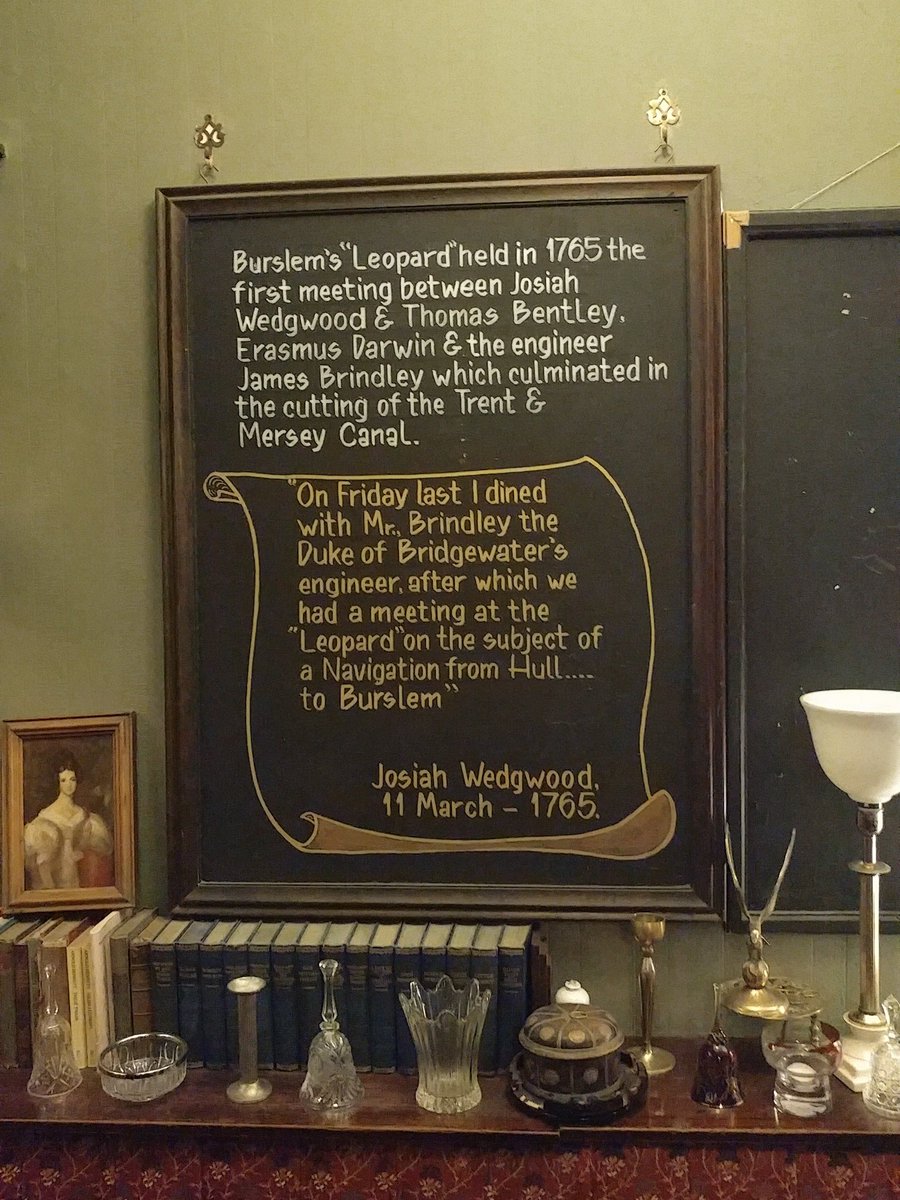 Burslem's "Leopard" held in 1765 the
first meeting between Josiah
Wedgwood & Thomas Bentley,
Erasmus Darwin & the engineer
James Brindley which culminated in
the cutting of the Trent &
Mersey Canal.
"On Friday last I dined
with Mr., Brindley the
Duke of Bridgewater's
engineer, after which we
had a meeting at the
"Leopard" on the subject of
a Navigation from Hull....
to Burslem"
Josiah Wedgwood,
11 March – 1765.